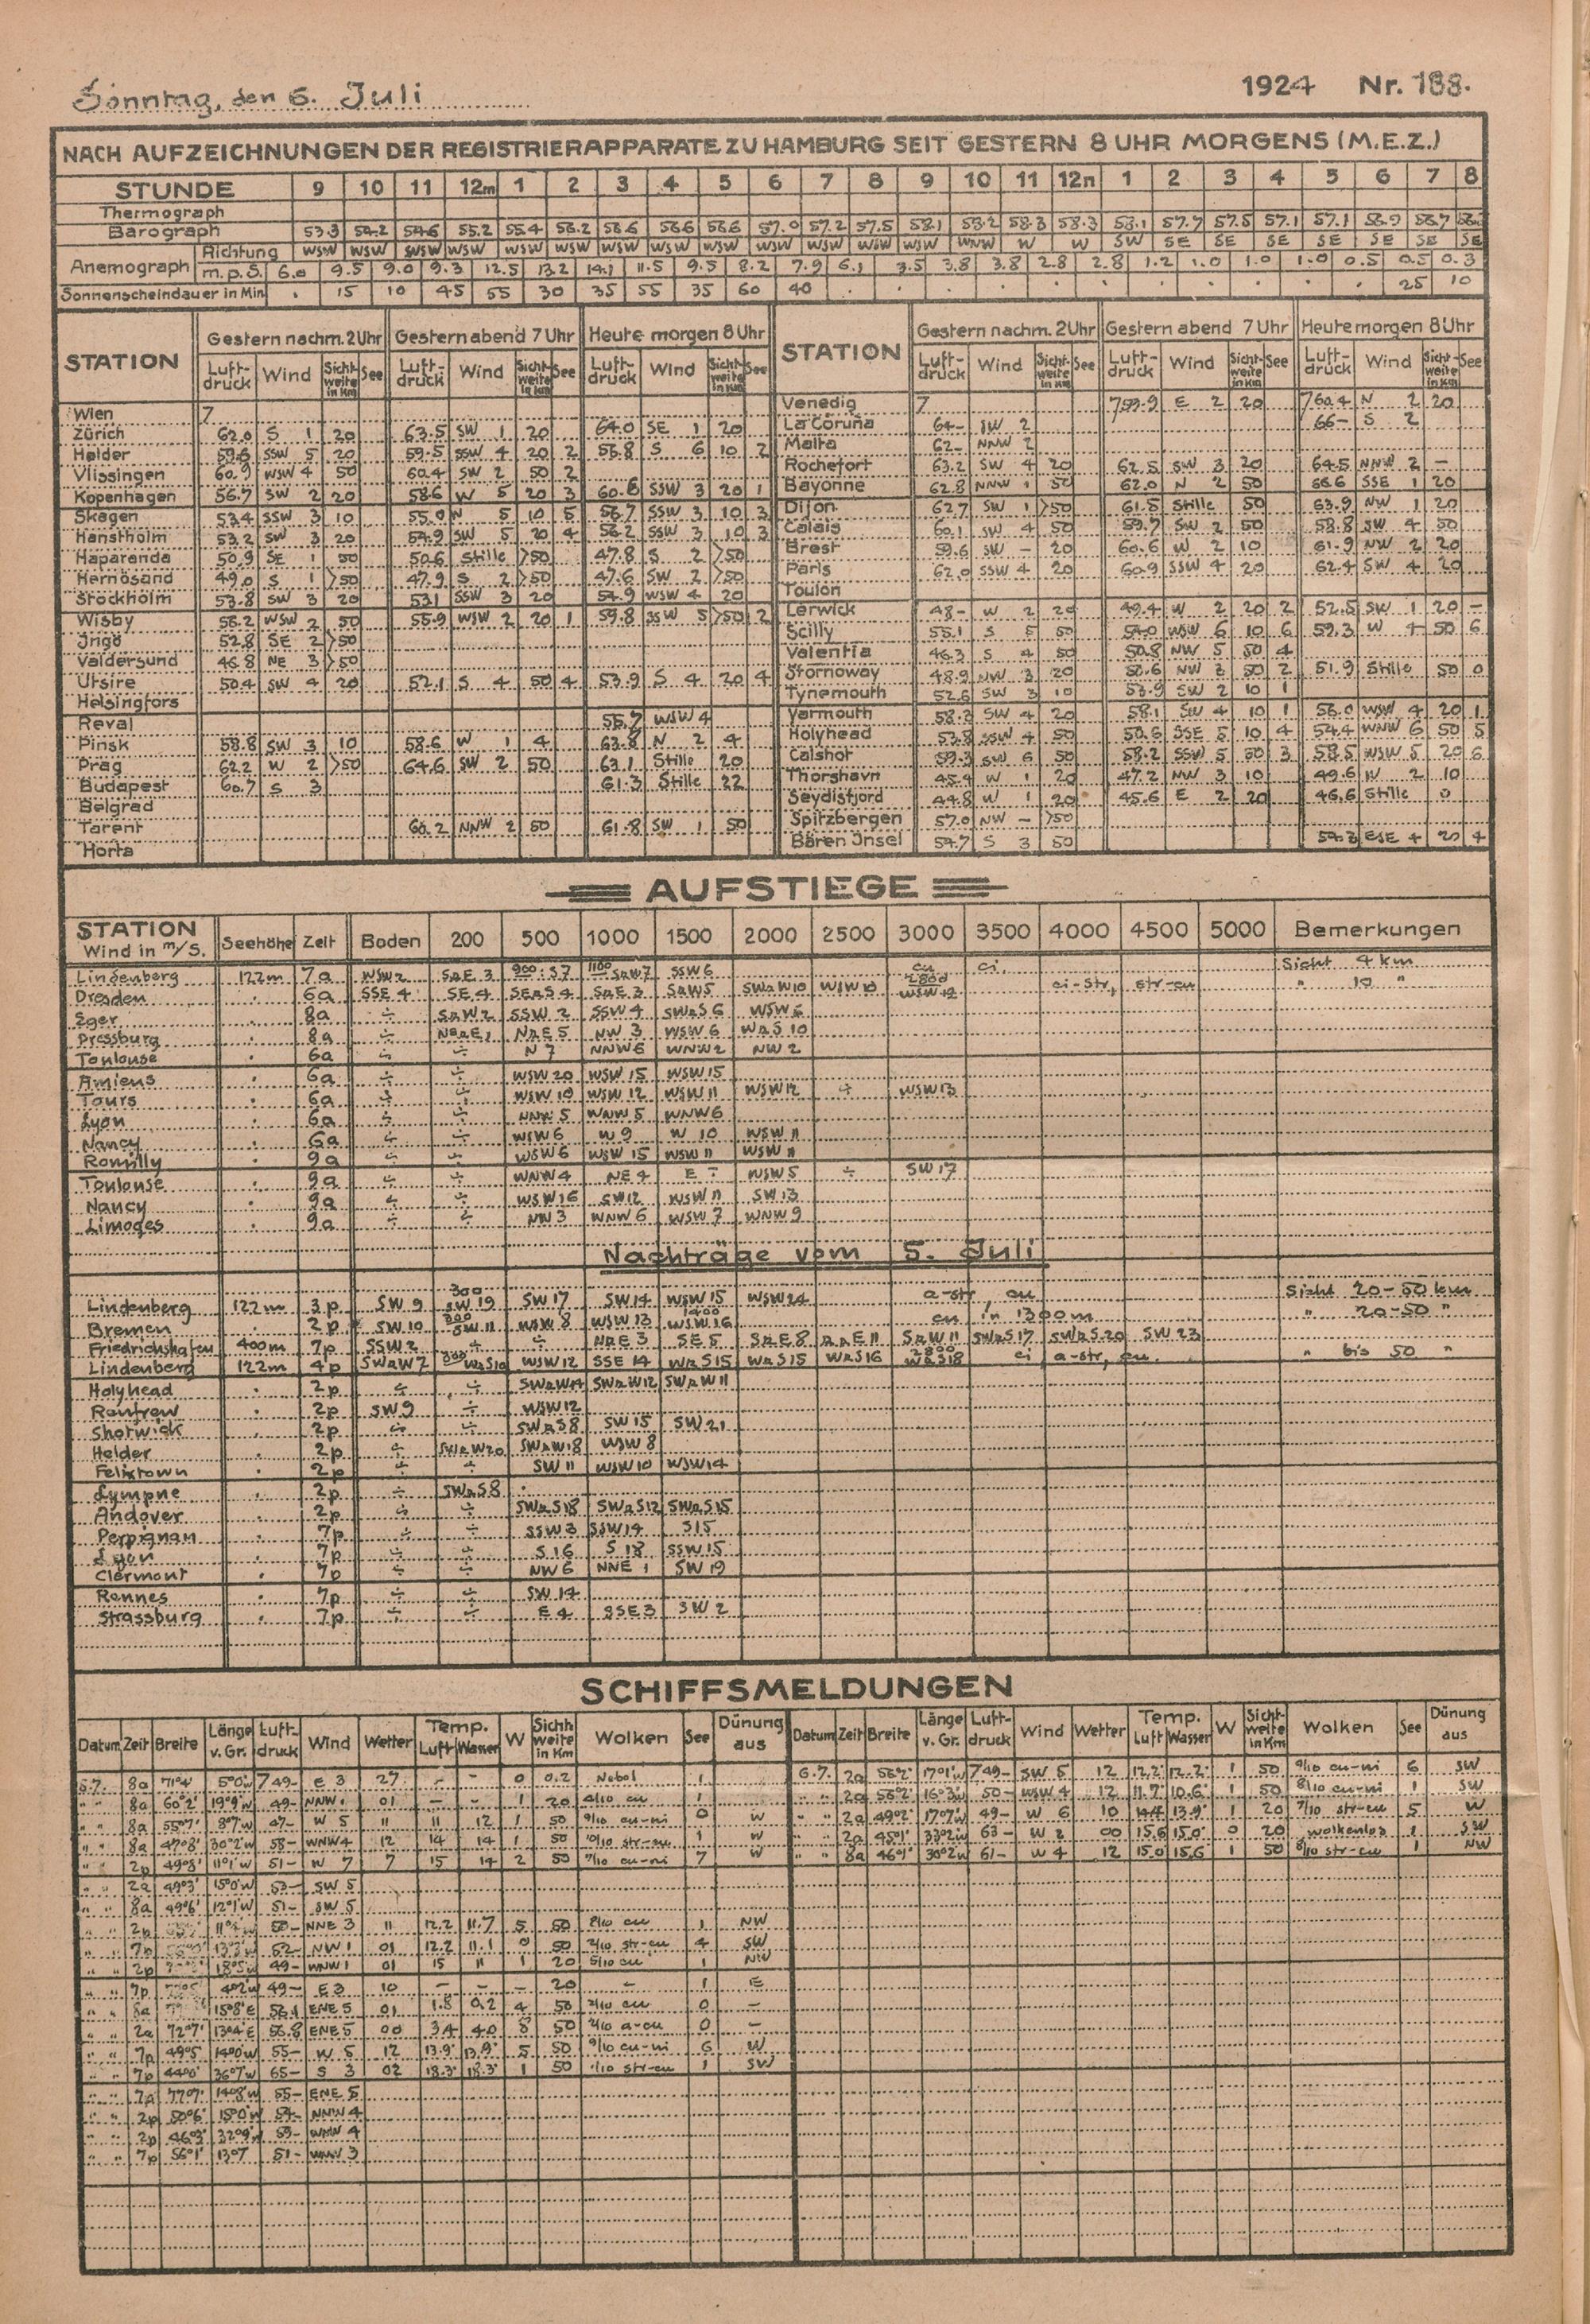 Sonntag, den 6. Juli 1924 Nr. 188.
NACH AUFZEICHNUNGEN DER REGISTRIERAPPARATE ZU HAMBURG SEIT GESTERN 8 UHR MORGENS (M.E.Z.)
STUNDE 9 10 11 12m 1 2 3 4 5 6 7 8 9 10 11 12n 1 2 3 4 5 6 7 8
Thermograph
Barograph 53.3 54.2 54.6 55.2 55.4 56.2 56.6 56.6 56.6 57.0 57.2 57.5 58.1 58.2 58.3 58.3 58.1 57.7 57.5 57.1 57.1 56.9 56.7
Anemograph Richtung WSW WSW WSW WSW WSW WSW WSW WSW WSW WSW WSW WSW WSW WNW W W SW SE SE SE SE SE SE SE
m.p.S. 6.0 9.5 9.0 9.3 12.5 13.2 14.1 11.5 9.5 8.2 7.9 6.1 3.5 3.8 3.8 2.8 2.8 1.2 1.0 1.0 1.0 0.5 0.5 0.3
Sonnenscheindauer in Min. . 15 10 45 55 30 35 55 35 60 40 . . . . . . . . . . . 25 10
STATION Gestern nachm. 2 Uhr Gestern abend 7 Uhr Heute morgen 8 Uhr STATION Gestern nachm. 2 Uhr Gestern abend 7 Uhr Heute morgen 8 Uhr
Luft-druck Wind Sicht-weite in Km See Luft-druck Wind Sicht-weite in Km See Luft-druck Wind Sicht-weite in Km See Luft-druck Wind Sicht-weite in Km See Luft-druck Wind Sicht-weite in Km See Luft-druck Wind Sicht-weite in Km See
Wien 7 Venedig 7 759.9 E 2 20 760.4 N 2 20
Zürich 62.0 S 1 20 63.5 SW 1 20 64.0 SE 1 20 La Coruña 64- SW 2 66- S 2
Helder 59.6 SSW 5 20 59.5 SSW 4 20 2 56.8 S 6 10 2 Malta 62- NNW 2
Vlissingen 60.9 WSW 4 50 60.4 SW 2 50 2 Rochefort 63.2 SW 4 20 62.5 SW 3 20 64.5 NNW 2 -
Kopenhagen 56.7 SW 2 20 58.6 W 5 20 3 60.8 SSW 3 20 1 Bayonne 62.8 NNW 1 50 62.0 N 2 50 66.6 SSE 1 20
Skagen 53.4 SSW 3 10 55.0 N 5 10 5 56.7 SSW 3 10 3 Dijon 62.7 SW 1 >50 61.5 Stille 50 63.9 NW 1 20
Hanstholm 53.2 SW 3 20 54.9 SW 5 20 4 56.2 SSW 3 10 3 Calais 60.1 SW 4 50 59.7 SW 2 50 58.8 SW 4 50
Haparanda 50.9 SE 1 50 50.6 Stille >50 47.8 S 2 >50 Brest 59.6 SW - 20 60.6 W 2 10 61.9 NW 2 20
Hernösand 49.0 S 1 >50 47.9 S 2 >50 47.6 SW 2 >50 Paris 62.0 SSW 4 20 60.9 SSW 4 20 62.4 SW 4 20
Stockholm 53.8 SW 3 20 53.1 SSW 3 20 54.9 WSW 4 20 Toulon
Wisby 56.2 WSW 2 50 55.9 WSW 2 20 1 59.8 SSW 5 >50 2 Lerwick 48- W 2 20 49.4 W 2 20 2 52.5 SW 1 20 -
Jngö 52.8 SE 2 >50 Scilly 55.1 S 5 50 54.0 WSW 6 10 6 59.3 W 4 50 6
Valdersund 46.8 NE 3 >50 Valentia 46.3 S 4 50 50.8 NW 5 50 4
Utsire 50.4 SW 4 20 52.1 S 4 50 4 53.9 S 4 20 4 Stornoway 48.9 NW 3 20 50 2 51.9 Stille 50 0
Helsingfors Tynemouth 52.6 SW 3 10 53.9 SW 2 10 1
Reval 55.7 WSW 4 Yarmouth 58.2 SW 4 20 58.1 SW 4 10 1 56.0 WSW 4 20 1
Pinsk 58.8 SW 3 10 58.6 W 1 4 63.8 N 2 4 Holyhead 53.8 SSW 4 50 50.6 SSE 5 10 4 54.4 WNW 6 50 5
Prag 62.2 W 2 >50 64.6 SW 2 50 63.1 Stille 20 Calshot 59.3 SW 6 50 58.2 SSW 5 50 3 58.5 WSW 5 20 6
Budapest 60.7 S 3 61.3 Stille 22 Thorshavn 45.4 W 1 20 47.2 NW 3 10 49.6 W 2 10
Belgrad Seydisfjord 44.8 W 1 20 45.6 E 2 20 46.6 Stille 0
Tarent 60.2 NNW 2 50 61.8 SW 1 50 Spitzbergen 57.0 NW - >50
Horta Bären Jnsel 54.7 S 3 50 54.3 ESE 4 20 4
AUFSTIEGE
STATION Wind in m/S. Seehöhe Zeit Boden 200 500 1000 1500 2000 2500 3000 3500 4000 4500 5000 Bemerkungen
Lindenberg 122m 7a WSW 2 SRE 3 900: S7 1100 SRW 7 SSW 6 cu ci Sicht 4 km
Dresden . 6a SSE 4 SE 4 SERS 4 SRE 3 SRW 5 SWRW 10 WSW 10 2800 WSW 12 ci-str, str-cu " 10 "
Eger . 8a ÷ SRW 2 SSW 2 SSW 4 SWRS 6 WSW 6
Pressburg . 8a ÷ NERE 1 NRE 5 NW 3 WSW 6 WRS 10
Toulouse . 6a ÷ ÷ N 7 NNW 6 WNW 2 NW 2
Amiens . 6a ÷ ÷ WSW 20 WSW 15 WSW 15
Tours . 6a ÷ ÷ WSW 10 WSW 12 WSW 11 WSW 12 ÷ WSW 13
Lyon . 6a ÷ ÷ NNW 5 WNW 5 WNW 6
Nancy . 6a ÷ ÷ WSW 6 W 9 W 10 WSW 11
Romilly . 9a ÷ ÷ WSW 6 WSW 15 WSW 11 WSW 11
Toulouse . 9a ÷ ÷ WNW 4 NE 4 E - WSW 5 ÷ SW 17
Nancy . 9a ÷ ÷ WSW 16 SW 12 WSW 11 SW 13
Limoges . 9a ÷ ÷ NW 3 WNW 6 WSW 7 WNW 9
Nachträge vom 5. Juli
Lindenberg 122m 3p SW 9 300 SW 19 SW 17 SW 14 WSW 15 WSW 24 a-str, cu Sicht 20-50 km
Bremen . 2p SW 10 SW 11 WSW 8 WSW 13 1400 WSW 16 cu in 1300m " 20-50 "
Friedrichshafen 400m 7p SSW 2 ÷ ÷ NRE 3 SE 5 SRE 8 SRW 11 SWRS 17 SWRS 20 SW 23
Lindenberg 122m 4p SWRW 7 WRS 10 WSW 12 SSE 14 WRS 15 WRS 15 WRS 16 2800 WRS 18 ci a-str, cu. " bis 50 "
Holyhead . 2p ÷ ÷ SWRW 14 SWRW 12 SWRW 11
Renfrew . 2p SW 9 ÷ WSW 12
Shotwick . 2p ÷ ÷ SWRS 8 SW 15 SW 21
Helder . 2p ÷ SWRW 20 SWRW 18 WSW 8
Felixtown . 2p ÷ ÷ SW 11 WSW 10 WSW 14
Lympne . 2p ÷ SWRS 8 .
Andover . 2p ÷ ÷ SWRS 18 SWRS 12 SWRS 15
Perpignan . 7p ÷ ÷ SSW 3 SSW 14 S 15
Lyon . 7p ÷ ÷ S 16 S 18 SSW 15
Clermont . 7p ÷ ÷ NW 6 NNE 1 SW 19
Rennes . 7p ÷ ÷ SW 14
Strassburg . 7p ÷ ÷ E 4 SSE 3 SW 2
SCHIFFSMELDUNGEN
Datum Zeit Breite Länge v. Gr. Luft-druck Wind Wetter Temp. Luft Wasser W Sicht-weite in Km Wolken See Dünung aus Datum Zeit Breite Länge v. Gr. Luft-druck Wind Wetter Temp. Luft Wasser W Sicht-weite in Km Wolken See Dünung aus
5.7. 8a 71°4' 5°0'W 749- E 3 27 - - 0 0.2 Nebel 1 6.7. 2a 56°2' 17°01'W 749- SW 5 12 12.2° 12.2° 1 50 9/10 cu-ni 6 SW
" " 8a 60°2' 19°9'W 49- NNW 1 01 - - 1 20 4/10 cu 1 " " 2a 56°2' 16°3'W 50- WSW 4 12 11.7° 10.6° 1 50 8/10 cu-ni 1 SW
" " 8a 55°7' 8°7'W 47- W 5 11 11 12 1 50 9/10 cu-ni 0 W " " 2a 49°2' 17°7'W 49- W 6 10 14.4 13.9° 1 20 7/10 str-cu 5 W
" " 8a 47°8' 30°2'W 58- WNW 4 12 14 14 1 50 10/10 str-cu 1 W " " 2a 45°1' 33°2'W 63- W 2 00 15.6 15.0° 0 20 wolkenlos 1 SW
" " 2p 49°8' 11°1'W 51- W 7 7 15 14 2 50 7/10 cu-ni 7 W " " 8a 46°1' 30°2'W 61- W 4 12 15.0 15.6 1 50 8/10 str-cu 1 NW
" " 2a 49°3' 15°0'W 53- SW 5
" " 8a 49°6' 12°1'W 51- SW 5
" " 2p 50- NNE 3 11 12.2 11.7 5 50 8/10 cu 1 NW
" " 7p 52- NW 1 01 12.2 11.1 0 50 2/10 str-cu 4 SW
" " 2p 18°5'W 49- WNW 1 01 15 11 1 20 5/10 cu 1 NW
" " 7p 4°2'W 49- E 3 10 - - - 20 - 1 E
" " 8a 15°8'E 58.1 ENE 5 01 1.8 0.2 4 50 2/10 cu 0 -
" " 2a 72°7' 13°4'E 56.8 ENE 5 00 3.4 4.0 8 50 2/10 a-cu 0 -
" " 7p 49°5 14°0'W 55- W 5 12 13.9° 13.9° 5 50 9/10 cu-ni 6 W
" " 7p 44°0' 36°7'W 65- S 3 02 18.3° 18.3° 1 50 1/10 str-cu 1 SW
" " 7a 77°7' 14°8'W 55- ENE 5
" " 2p 50°6' 15°0'W 54- NNW 4
" " 2p 46°3' 32°9'W 59- WNW 4
" " 7p 56°1' 13°7 51- WNW 3